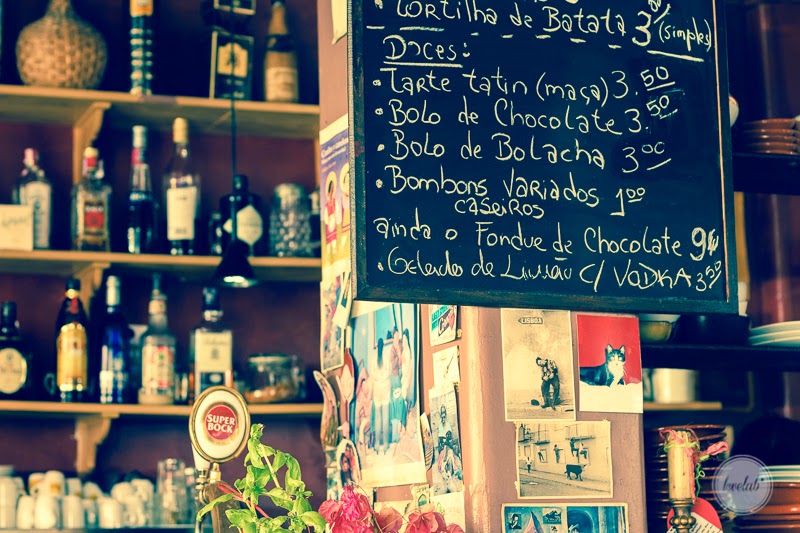 • Tortilha de Batata 3 (simples)
Doces:
• Tarte tatin (maça) 3.50
• Bolo de Chocolate 3.50
• Bolo de Bolacha 300
• Bombons variados 100
caseiros
ainda o Fondue de Chocolate 9€
• Gelado de Limão C/ VODKA 3.50
SUPER
BOCK
LISBOA
lovelab